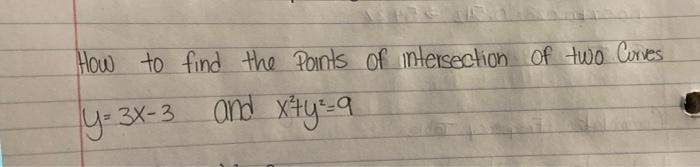 How to find the Points of intersection of two Curves
y=3x-3 and x²+y²=9